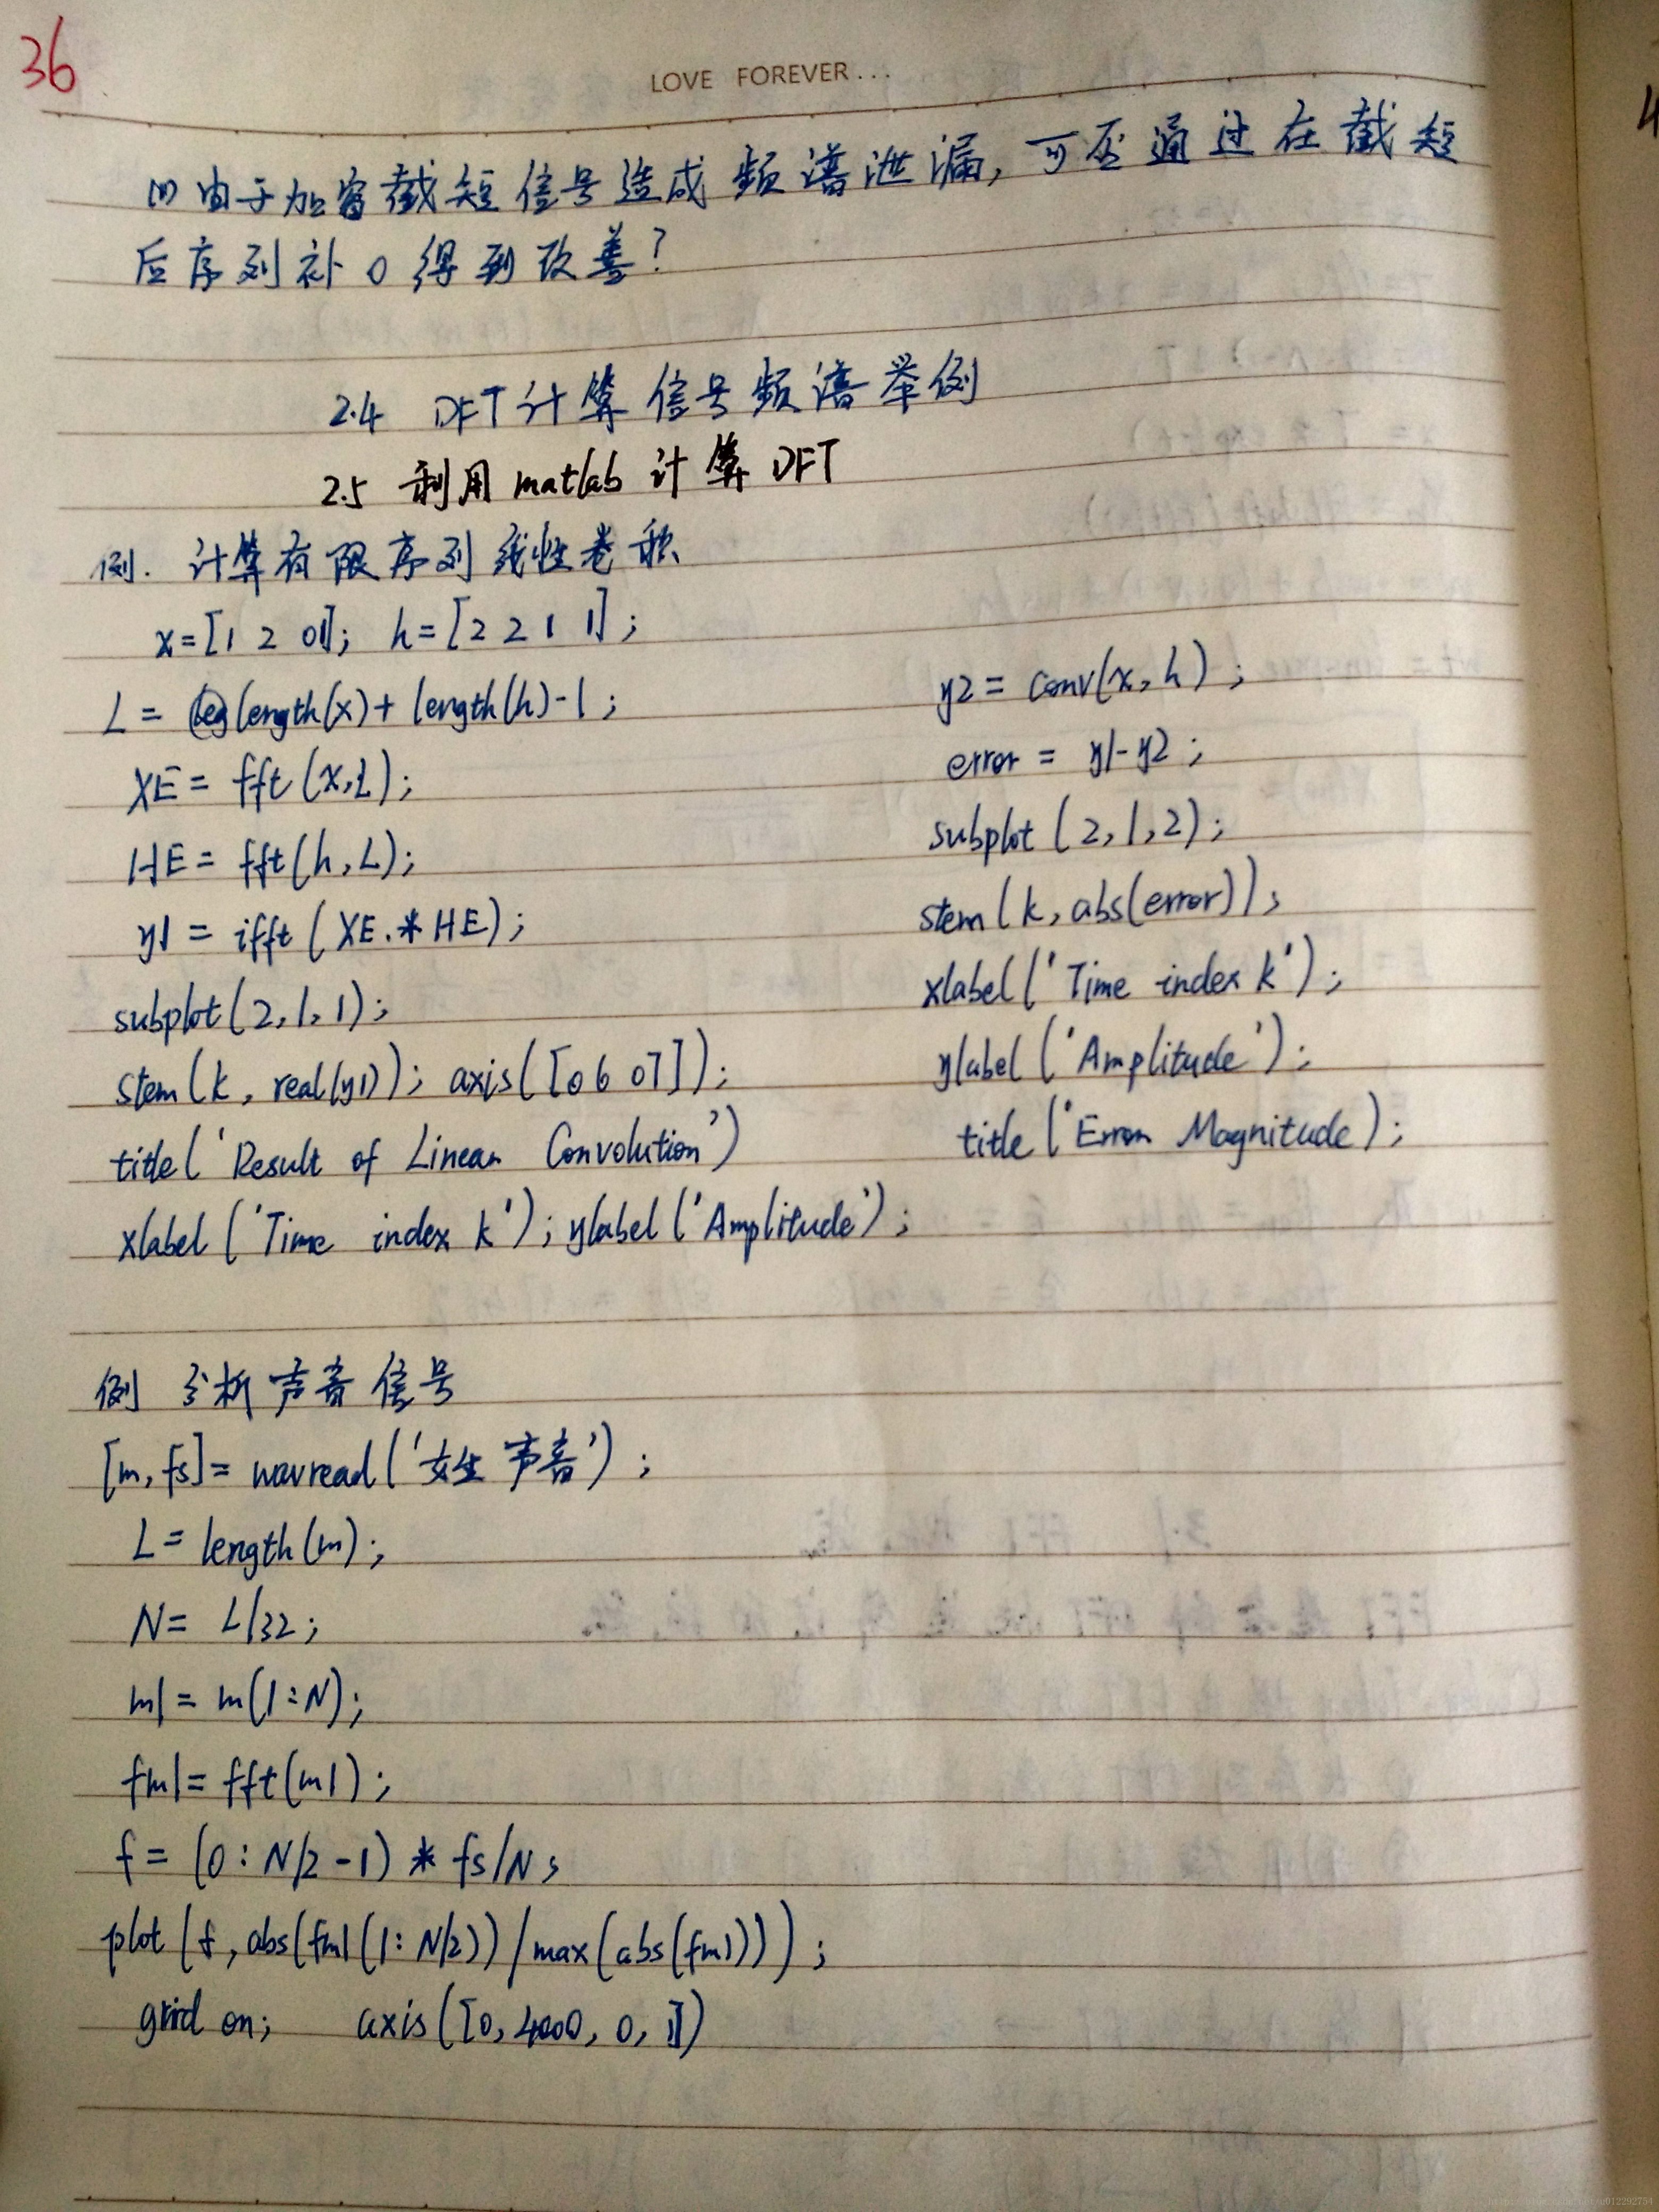 36
LOVE FOREVER...
(1) 由于加窗截短信号造成频谱泄漏,可否通过在截短
后序列补0得到改善?
2.4 DFT计算信号频谱举例
2.5 利用matlab计算DFT
例. 计算有限序列线性卷积
x=[1 2 0 1]; h=[2 2 1 1];
L = length(x)+length(h)-1;
XE = fft(x,L);
HE = fft(h,L);
y1 = ifft(XE.*HE);
subplot(2,1,1);
stem(k, real(y1)); axis([0 6 0 7]);
title('Result of Linear Convolution')
xlabel('Time index k'); ylabel('Amplitude');
y2 = conv(x,h);
error = y1-y2;
subplot(2,1,2);
stem(k,abs(error));
xlabel('Time index k');
ylabel('Amplitude');
title('Error Magnitude);
例 分析声音信号
[m,fs]=wavread('女生声音');
L=length(m);
N= L/32;
m1=m(1:N);
fm1=fft(m1);
f=(0:N/2-1)*fs/N;
plot(f,abs(fm1(1:N/2))/max(abs(fm1)));
grid on; axis([0,4000,0,1])